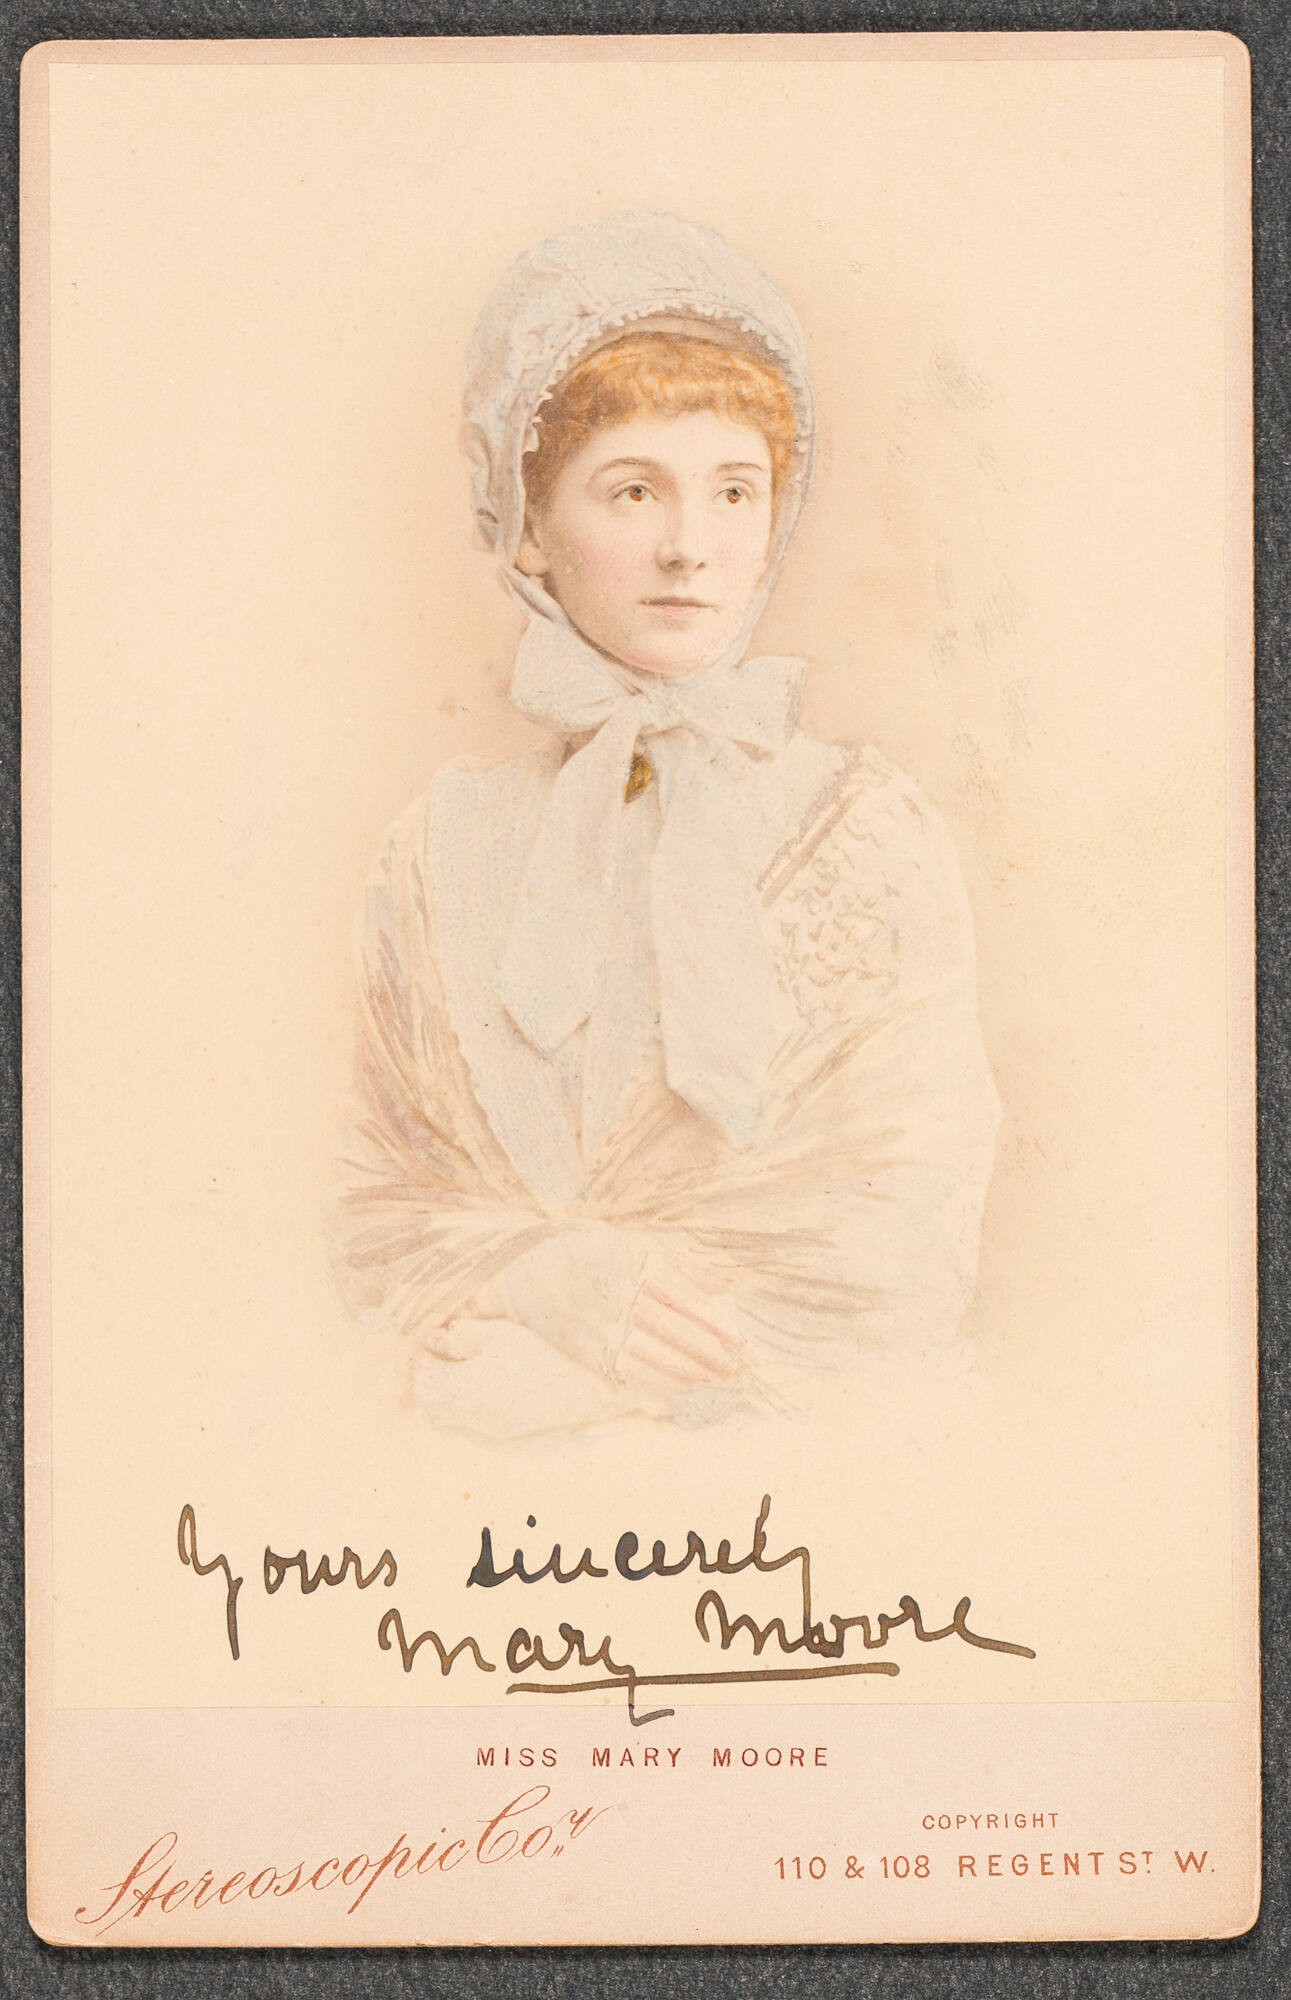 Yours sincerely
Mary Moore
MISS MARY MOORE
Stereoscopic Coy.
COPYRIGHT
110 & 108 REGENT ST. W.